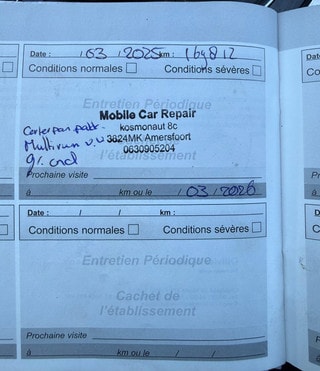 Date : /03 / 2025 km :
Conditions normales Conditions sévères
Entretien Périodique
Mobile Car Repair
kosmonaut 8c
3824MK Amersfoort
0630905204
l'établissement
Prochaine visite
à km ou le /03/2026
Date : / / km :
Conditions normales Conditions sévères
Entretien Périodique
Cachet de
l'établissement
Prochaine visite
à km ou le / /